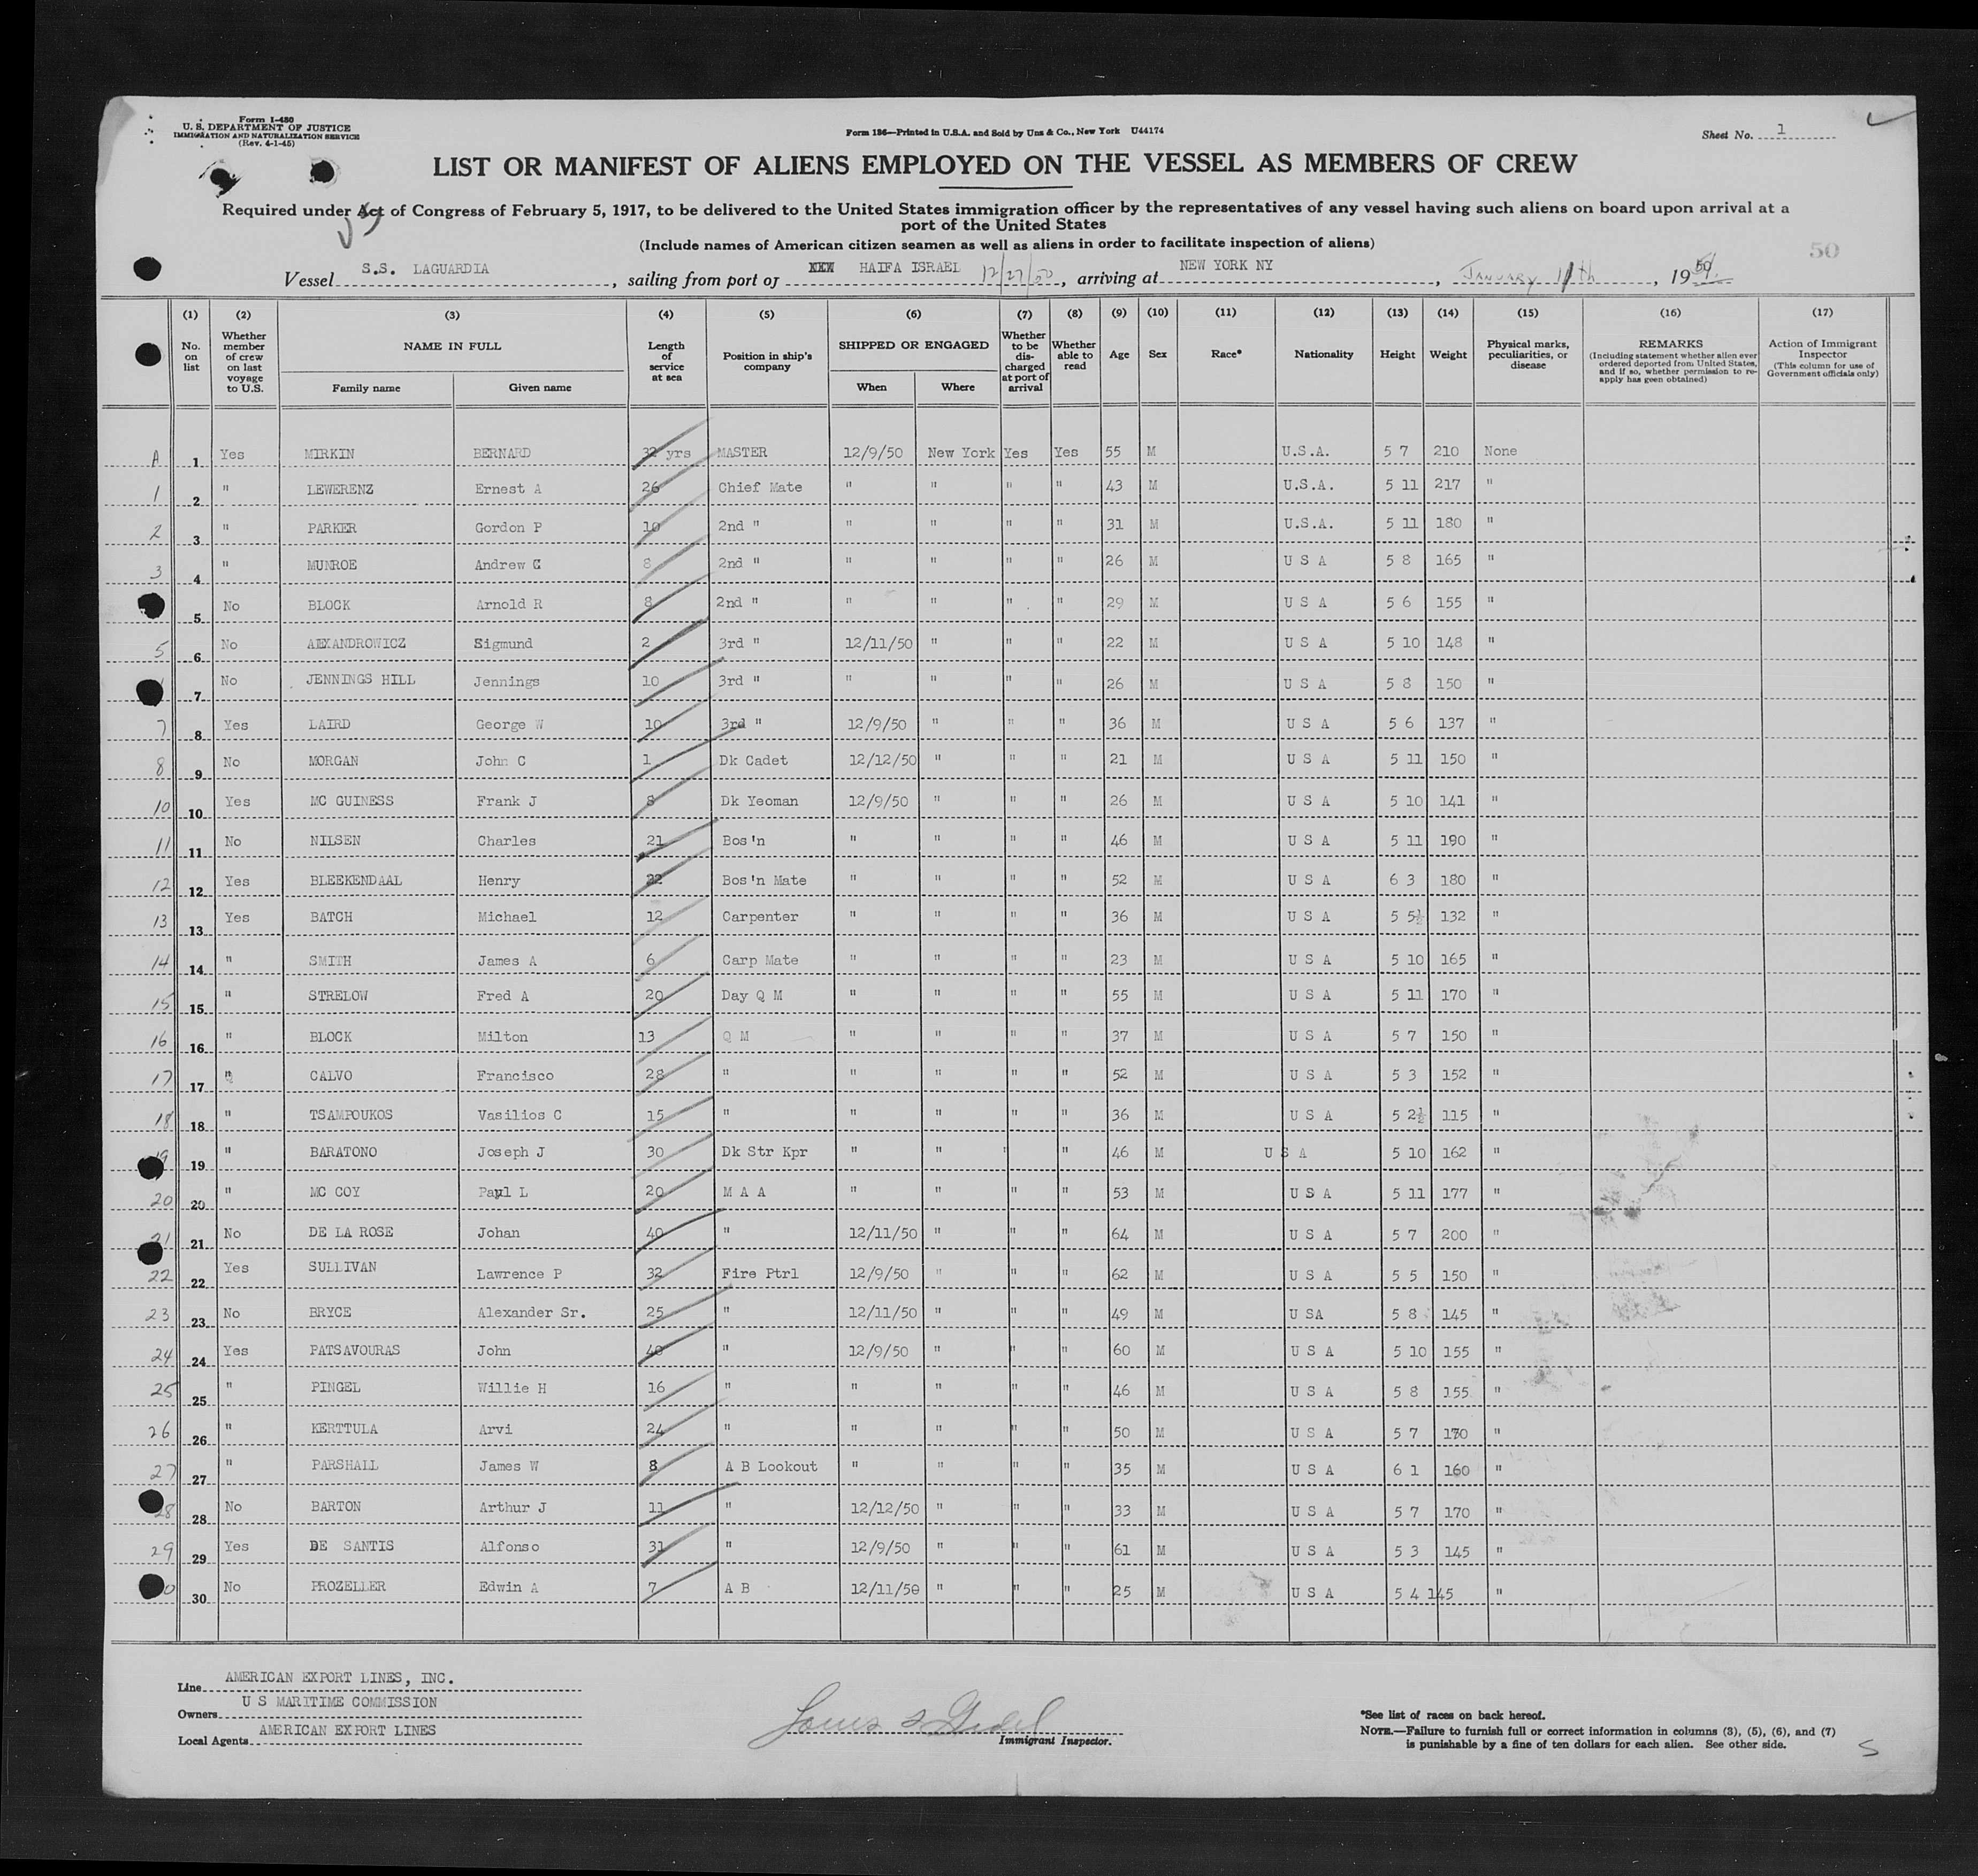 Form I-480
U. S. DEPARTMENT OF JUSTICE
IMMIGRATION AND NATURALIZATION SERVICE
(Rev. 4-1-45)
Form 186—Printed in U.S.A. and Sold by Unz & Co., New York U44174
Sheet No. 1
LIST OR MANIFEST OF ALIENS EMPLOYED ON THE VESSEL AS MEMBERS OF CREW
Required under Act of Congress of February 5, 1917, to be delivered to the United States immigration officer by the representatives of any vessel having such aliens on board upon arrival at a
port of the United States
(Include names of American citizen seamen as well as aliens in order to facilitate inspection of aliens)
50
Vessel S.S. LAGUARDIA, sailing from port of HAIFA ISRAEL 12/27/50, arriving at NEW YORK NY, JANUARY 11th, 19
(1) (2) (3) (4) (5) (6) (7) (8) (9) (10) (11) (12) (13) (14) (15) (16) (17)
No. on list
Whether member of crew on last voyage to U.S.
NAME IN FULL
Family name
Given name
Length of service at sea
Position in ship's company
SHIPPED OR ENGAGED
When
Where
Whether to be discharged at port of arrival
Whether able to read
Age
Sex
Race*
Nationality
Height
Weight
Physical marks, peculiarities, or disease
REMARKS
(Including statement whether alien ever ordered deported from United States, and if so, whether permission to re-apply has geen obtained)
Action of Immigrant Inspector
(This column for use of Government officials only)
A 1 Yes MIRKIN BERNARD 32 yrs MASTER 12/9/50 New York Yes Yes 55 M U.S.A. 5 7 210 None
1 2 " LEWERENZ Ernest A 26 Chief Mate " " " " 43 M U.S.A. 5 11 217 "
2 3 " PARKER Gordon P 10 2nd " " " " " 31 M U.S.A. 5 11 180 "
3 4 " MUNROE Andrew C 8 2nd " " " " " 26 M U S A 5 8 165 "
5 No BLOCK Arnold R 8 2nd " " " " " 29 M U S A 5 6 155 "
5 6 No AEXANDROWICZ Sigmund 2 3rd " 12/11/50 " " " 22 M U S A 5 10 148 "
7 No JENNINGS HILL Jennings 10 3rd " " " " " 26 M U S A 5 8 150 "
7 8 Yes LAIRD George W 10 3rd " 12/9/50 " " " 36 M U S A 5 6 137 "
8 9 No MORGAN John C 1 Dk Cadet 12/12/50 " " " 21 M U S A 5 11 150 "
10 10 Yes MC GUINESS Frank J 8 Dk Yeoman 12/9/50 " " " 26 M U S A 5 10 141 "
11 11 No NILSEN Charles 21 Bos'n " " " " 46 M U S A 5 11 190 "
12 12 Yes BLEEKENDAAL Henry 22 Bos'n Mate " " " " 52 M U S A 6 3 180 "
13 13 Yes BATCH Michael 12 Carpenter " " " " 36 M U S A 5 5½ 132 "
14 14 " SMITH James A 6 Carp Mate " " " " 23 M U S A 5 10 165 "
15 15 " STRELOW Fred A 20 Day Q M " " " " 55 M U S A 5 11 170 "
16 16 " BLOCK Milton 13 Q M " " " " 37 M U S A 5 7 150 "
17 17 " CALVO Francisco 28 " " " " " 52 M U S A 5 3 152 "
18 18 " TSAMPOUKOS Vasilios C 15 " " " " " 36 M U S A 5 2½ 115 "
19 19 " BARATONO Joseph J 30 Dk Str Kpr " " " " 46 M U S A 5 10 162 "
20 20 " MC COY Paul L 20 M A A " " " " 53 M U S A 5 11 177 "
21 21 No DE LA ROSE Johan 40 " 12/11/50 " " " 64 M U S A 5 7 200 "
22 22 Yes SULLIVAN Lawrence P 32 Fire Ptrl 12/9/50 " " " 62 M U S A 5 5 150 "
23 23 No BRYCE Alexander Sr. 25 " 12/11/50 " " " 49 M U SA 5 8 145 "
24 24 Yes PATSAVOURAS John 40 " 12/9/50 " " " 60 M U S A 5 10 155 "
25 25 " PINGEL Willie H 16 " " " " " 46 M U S A 5 8 155 "
26 26 " KERTTULA Arvi 24 " " " " " 50 M U S A 5 7 170 "
27 27 " PARSHALL James W 8 A B Lookout " " " " 35 M U S A 6 1 160 "
28 28 No BARTON Arthur J 11 " 12/12/50 " " " 33 M U S A 5 7 170 "
29 29 Yes DE SANTIS Alfonso 31 " 12/9/50 " " " 61 M U S A 5 3 145 "
30 No PROZELLER Edwin A 7 A B 12/11/50 " " " 25 M U S A 5 4 145 "
Line AMERICAN EXPORT LINES, INC.
Owners U S MARITIME COMMISSION
Local Agents AMERICAN EXPORT LINES
Immigrant Inspector.
*See list of races on back hereof.
NOTE.—Failure to furnish full or correct information in columns (3), (5), (6), and (7)
is punishable by a fine of ten dollars for each alien. See other side.